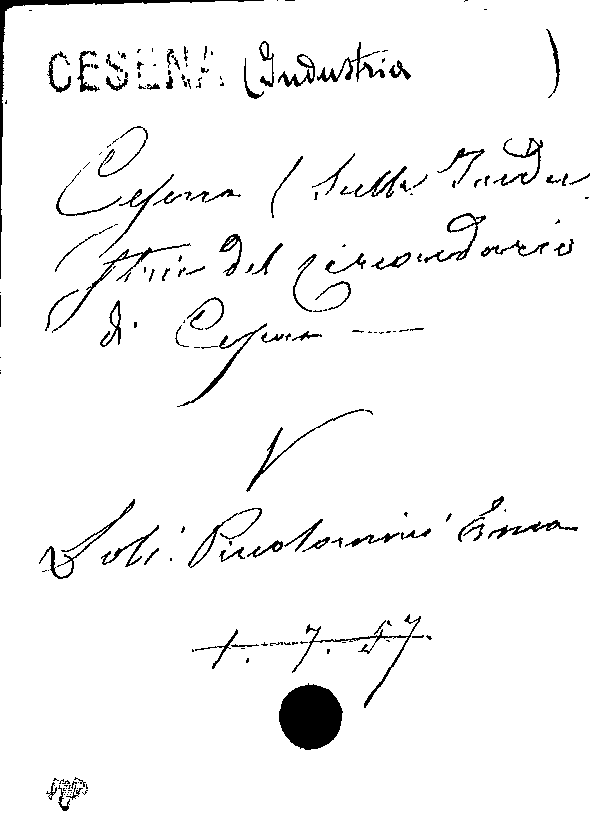 CESENA (Industria )
Cesena (Sulle Indu
strie del circondario
di Cesena —
V
Soli: Piccolomini Enea
1. 7. 57.